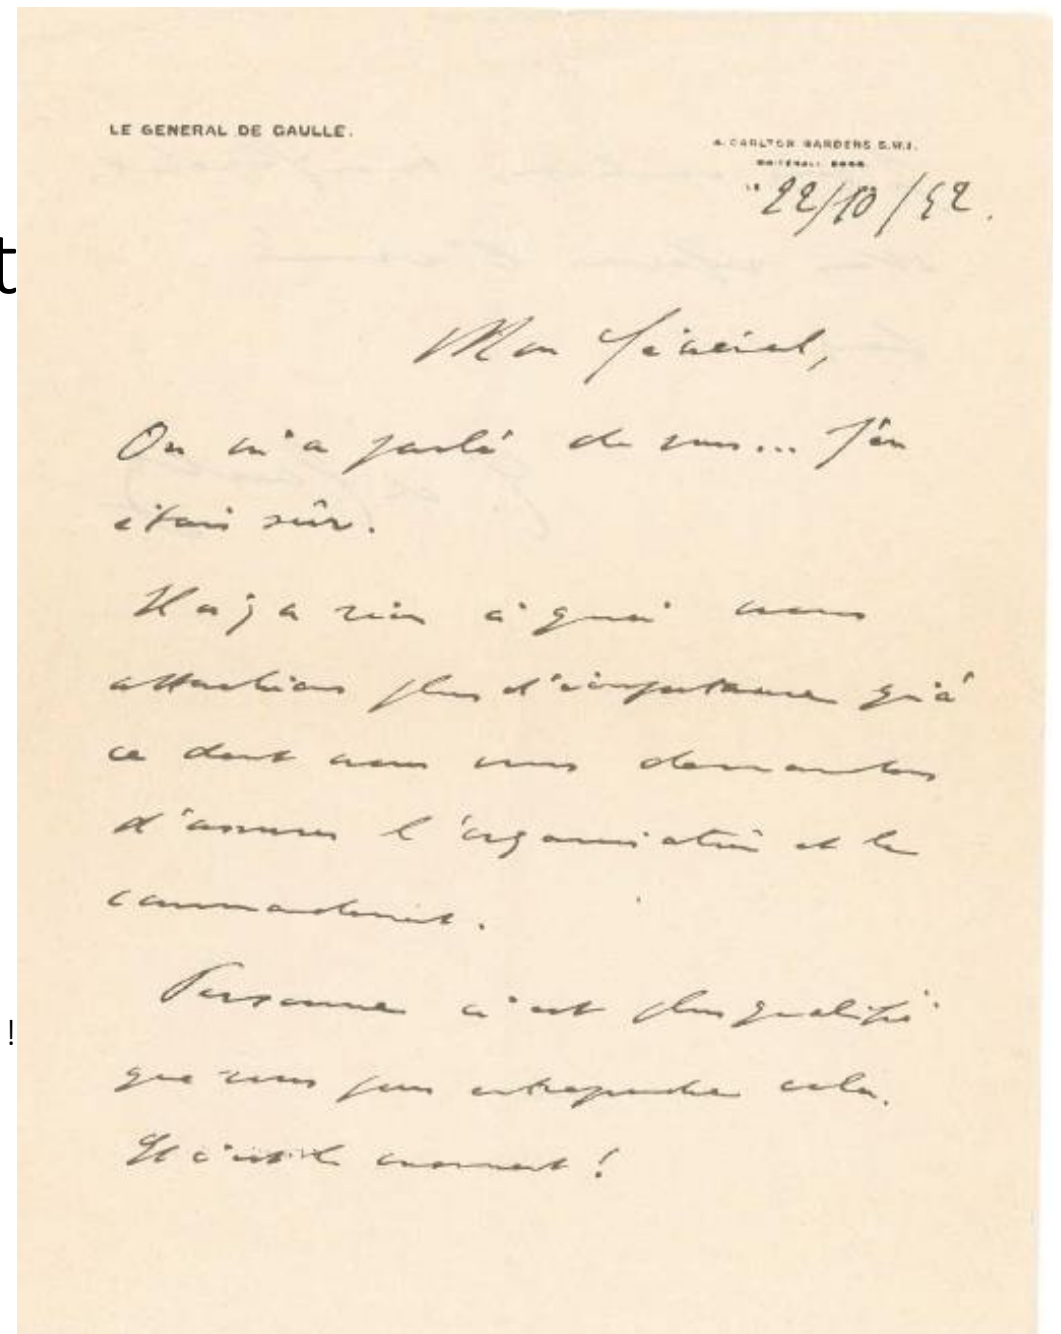 LE GENERAL DE GAULLE.
4, CARLTON GARDENS S.W.1.
WHITEHALL
LE 22/10/42.
t
Mon Général,
On m'a parlé de vous... J'en
étais sûr.
Il n'y a rien à quoi nous
attachions plus d'importance qu'à
ce dont nous vous demandons
d'assurer l'organisation et le
commandement.
Personne n'est plus qualifié
!
que vous pour entreprendre cela.
Et c'est le moment !